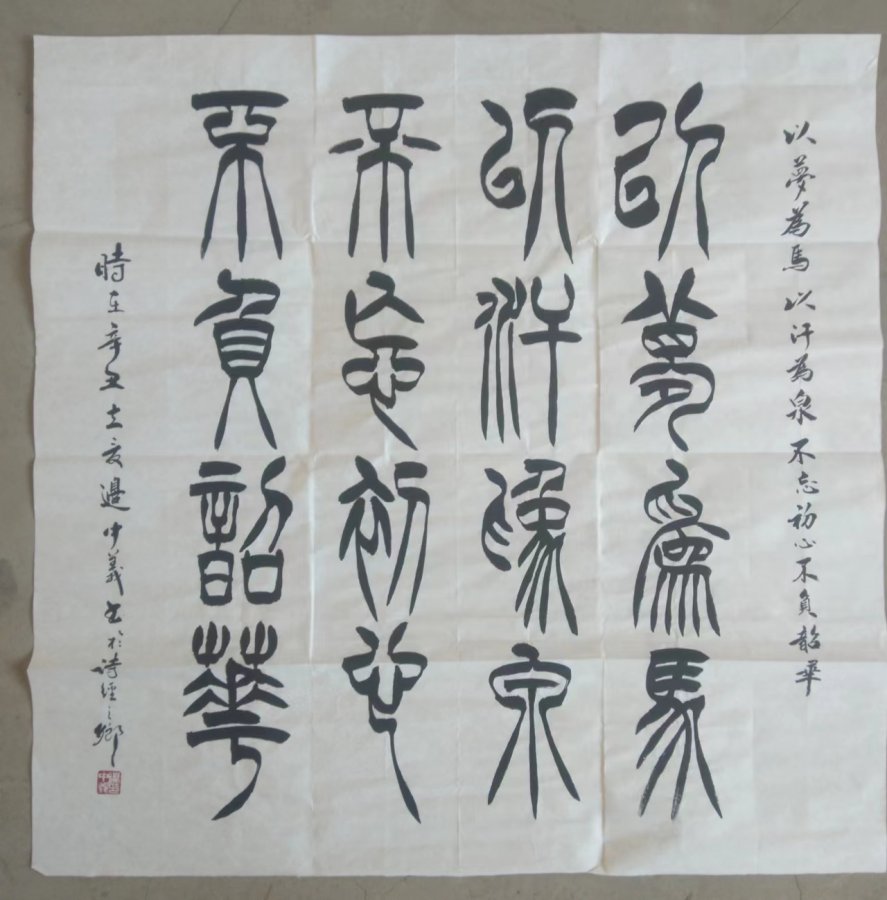 以夢為馬 以汗為泉 不忘初心 不負韶華
以夢為馬
以汗為泉
不忘初心
不負韶華
時在辛丑立夏邊中義書於詩經之鄉